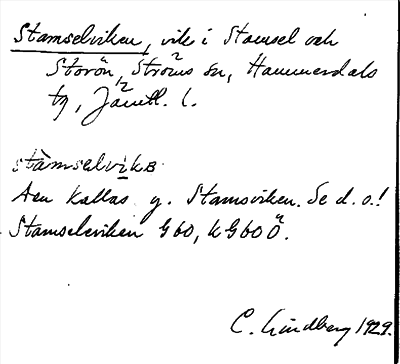 Stamselviken, vik i Stamsel och
Storön, Ströms sn, Hammerdals
tg, Jämtl. l.
stàmselvikɐ
Äen kallas y. Stamsviken. Se d. o.!
Stamseleviken G 60, KG60Ö.
C. Lindberg 1929.